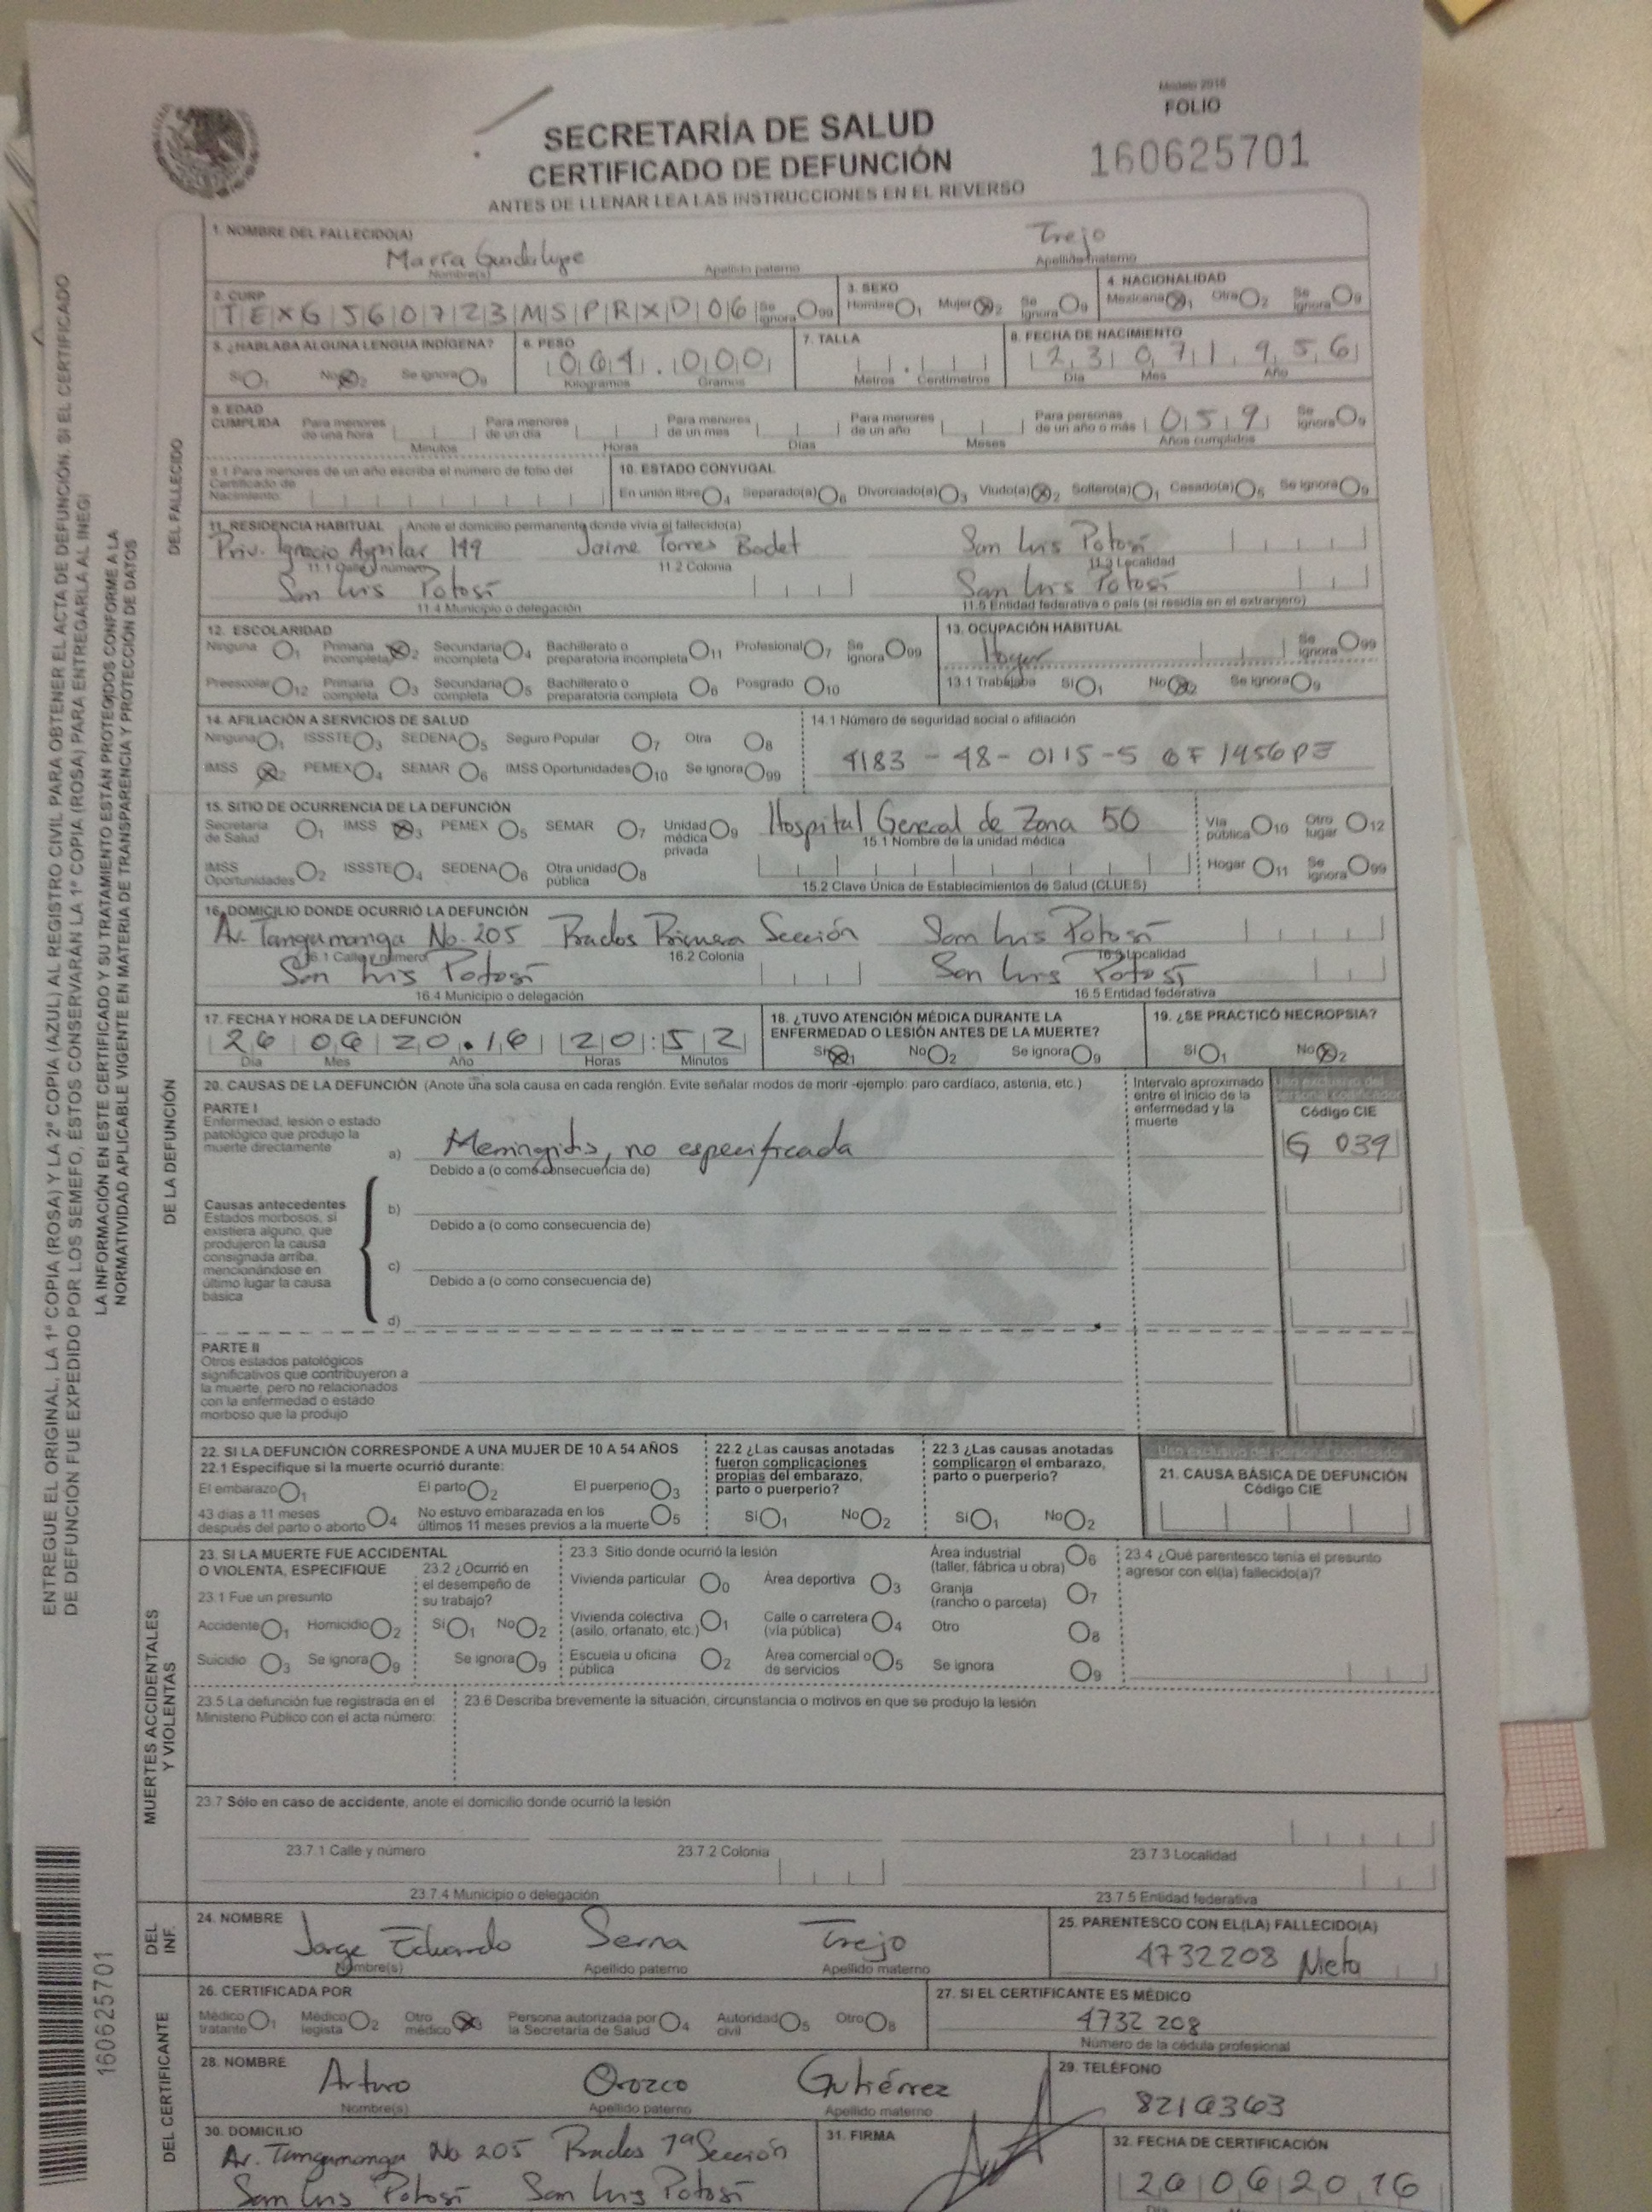 Modelo 2016
FOLIO
160625701
SECRETARÍA DE SALUD
CERTIFICADO DE DEFUNCIÓN
ANTES DE LLENAR LEA LAS INSTRUCCIONES EN EL REVERSO
ENTREGUE EL ORIGINAL, LA 1ª COPIA (ROSA) Y LA 2ª COPIA (AZUL) AL REGISTRO CIVIL PARA OBTENER EL ACTA DE DEFUNCIÓN. SI EL CERTIFICADO
DE DEFUNCIÓN FUE EXPEDIDO POR LOS SEMEFO, ÉSTOS CONSERVARÁN LA 1ª COPIA (ROSA) PARA ENTREGARLA AL INEGI
LA INFORMACIÓN EN ESTE CERTIFICADO Y SU TRATAMIENTO ESTÁN PROTEGIDOS CONFORME A LA
NORMATIVIDAD APLICABLE VIGENTE EN MATERIA DE TRANSPARENCIA Y PROTECCIÓN DE DATOS
DEL FALLECIDO
1. NOMBRE DEL FALLECIDO(A)
María Guadalupe Trejo
Nombre(s) Apellido paterno Apellido materno
2. CURP
TEXG560723MSPRXD06 Se ignora 99
3. SEXO
Hombre 1 Mujer 2 Se ignora 9
4. NACIONALIDAD
Mexicana 1 Otra 2 Se ignora 9
5. ¿HABLABA ALGUNA LENGUA INDÍGENA?
Sí 1 No 2 Se ignora 9
6. PESO
061.000
Kilogramos Gramos
7. TALLA
Metros Centímetros
8. FECHA DE NACIMIENTO
23 07 1956
Día Mes Año
9. EDAD CUMPLIDA
Para menores de una hora Minutos
Para menores de un día Horas
Para menores de un mes Días
Para menores de un año Meses
Para personas de un año o más 059 Años cumplidos
Se ignora 9
9.1 Para menores de un año escriba el número de folio del Certificado de Nacimiento
10. ESTADO CONYUGAL
En unión libre 4 Separado(a) 6 Divorciado(a) 3 Viudo(a) 2 Soltero(a) 1 Casado(a) 5 Se ignora 9
11. RESIDENCIA HABITUAL Anote el domicilio permanente donde vivía el fallecido(a)
Priv. Ignacio Aguilar 149 Jaime Torres Bodet San Luis Potosí
11.1 Calle y número 11.2 Colonia 11.3 Localidad
San Luis Potosí San Luis Potosí
11.4 Municipio o delegación 11.5 Entidad federativa o país (si residía en el extranjero)
12. ESCOLARIDAD
Ninguna 1 Primaria incompleta 2 Secundaria incompleta 4 Bachillerato o preparatoria incompleta 11 Profesional 7 Se ignora 99
Preescolar 12 Primaria completa 3 Secundaria completa 5 Bachillerato o preparatoria completa 6 Posgrado 10
13. OCUPACIÓN HABITUAL
Hogar Se ignora 99
13.1 Trabajaba Sí 1 No 2 Se ignora 9
14. AFILIACIÓN A SERVICIOS DE SALUD
Ninguna 1 ISSSTE 3 SEDENA 5 Seguro Popular 7 Otra 8
IMSS 2 PEMEX 4 SEMAR 6 IMSS Oportunidades 10 Se ignora 99
14.1 Número de seguridad social o afiliación
4183-48-0115-5 0F1956PE
15. SITIO DE OCURRENCIA DE LA DEFUNCIÓN
Secretaría de Salud 1 IMSS 3 PEMEX 5 SEMAR 7 Unidad médica privada 9
Hospital General de Zona 50
15.1 Nombre de la unidad médica
Vía pública 10 Otro lugar 12
IMSS Oportunidades 2 ISSSTE 4 SEDENA 6 Otra unidad pública 8
15.2 Clave Única de Establecimientos de Salud (CLUES)
Hogar 11 Se ignora 99
DE LA DEFUNCIÓN
16. DOMICILIO DONDE OCURRIÓ LA DEFUNCIÓN
Av. Tangamanga No. 205 Prados Primera Sección San Luis Potosí
16.1 Calle y número 16.2 Colonia 16.3 Localidad
San Luis Potosí San Luis Potosí
16.4 Municipio o delegación 16.5 Entidad federativa
17. FECHA Y HORA DE LA DEFUNCIÓN
26 06 2016 20:52
Día Mes Año Horas Minutos
18. ¿TUVO ATENCIÓN MÉDICA DURANTE LA ENFERMEDAD O LESIÓN ANTES DE LA MUERTE?
Sí 1 No 2 Se ignora 9
19. ¿SE PRACTICÓ NECROPSIA?
Sí 1 No 2
20. CAUSAS DE LA DEFUNCIÓN (Anote una sola causa en cada renglón. Evite señalar modos de morir -ejemplo: paro cardíaco, astenia, etc.)
Intervalo aproximado entre el inicio de la enfermedad y la muerte
Uso exclusivo del personal codificador
Código CIE
PARTE I
Enfermedad, lesión o estado patológico que produjo la muerte directamente
a) Meningitis, no especificada G 039
Debido a (o como consecuencia de)
Causas antecedentes
Estados morbosos, si existiera alguno, que produjeron la causa consignada arriba, mencionándose en último lugar la causa básica
b)
Debido a (o como consecuencia de)
c)
Debido a (o como consecuencia de)
d)
PARTE II
Otros estados patológicos significativos que contribuyeron a la muerte, pero no relacionados con la enfermedad o estado morboso que la produjo
22. SI LA DEFUNCIÓN CORRESPONDE A UNA MUJER DE 10 A 54 AÑOS
22.1 Especifique si la muerte ocurrió durante:
El embarazo 1 El parto 2 El puerperio 3
43 días a 11 meses después del parto o aborto 4 No estuvo embarazada en los últimos 11 meses previos a la muerte 5
22.2 ¿Las causas anotadas fueron complicaciones propias del embarazo, parto o puerperio?
Sí 1 No 2
22.3 ¿Las causas anotadas complicaron el embarazo, parto o puerperio?
Sí 1 No 2
Uso exclusivo del personal codificador
21. CAUSA BÁSICA DE DEFUNCIÓN
Código CIE
MUERTES ACCIDENTALES Y VIOLENTAS
23. SI LA MUERTE FUE ACCIDENTAL O VIOLENTA, ESPECIFIQUE
23.1 Fue un presunto
Accidente 1 Homicidio 2
Suicidio 3 Se ignora 9
23.2 ¿Ocurrió en el desempeño de su trabajo?
Sí 1 No 2
Se ignora 9
23.3 Sitio donde ocurrió la lesión
Vivienda particular 0 Área deportiva 3 Área industrial (taller, fábrica u obra) 6
Vivienda colectiva (asilo, orfanato, etc.) 1 Calle o carretera (vía pública) 4 Granja (rancho o parcela) 7
Escuela u oficina pública 2 Área comercial o de servicios 5 Otro 8
Se ignora 9
23.4 ¿Qué parentesco tenía el presunto agresor con el(la) fallecido(a)?
23.5 La defunción fue registrada en el Ministerio Público con el acta número:
23.6 Describa brevemente la situación, circunstancia o motivos en que se produjo la lesión
23.7 Sólo en caso de accidente, anote el domicilio donde ocurrió la lesión
23.7.1 Calle y número 23.7.2 Colonia 23.7.3 Localidad
23.7.4 Municipio o delegación 23.7.5 Entidad federativa
DEL INF.
24. NOMBRE
Jorge Eduardo Serna Trejo
Nombre(s) Apellido paterno Apellido materno
25. PARENTESCO CON EL(LA) FALLECIDO(A)
4732208 Nieto
DEL CERTIFICANTE
26. CERTIFICADA POR
Médico tratante 1 Médico legista 2 Otro médico 3 Persona autorizada por la Secretaría de Salud 4 Autoridad civil 5 Otro 8
27. SI EL CERTIFICANTE ES MÉDICO
4732208
Número de la cédula profesional
28. NOMBRE
Arturo Orozco Gutiérrez
Nombre(s) Apellido paterno Apellido materno
29. TELÉFONO
8216363
30. DOMICILIO
Av. Tangamanga No 205 Prados 1ª Sección
San Luis Potosí San Luis Potosí
31. FIRMA
32. FECHA DE CERTIFICACIÓN
26 06 2016
Día
160625701